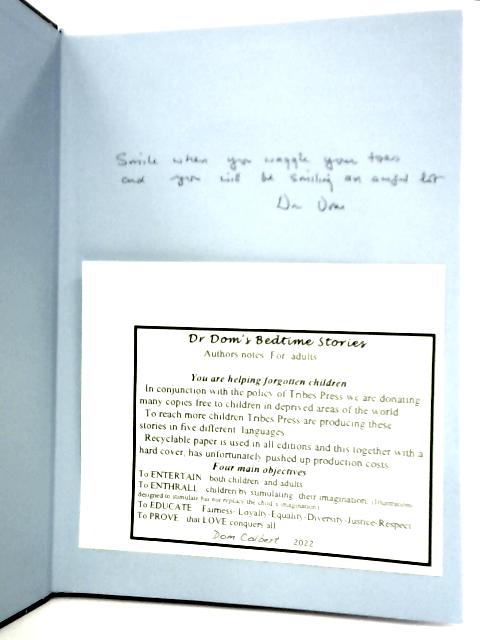 Smile when you waggle your toes
and you will be smiling an awful lot
Dr Dom
Dr Dom's Bedtime Stories
Authors notes For adults
You are helping forgotten children
In conjunction with the policy of Tribes Press we are donating
many copies free to children in deprived areas of the world
To reach more children Tribes Press are producing these
stories in five different languages
Recyclable paper is used in all editions and this together with a
hard cover, has unfortunately pushed up production costs.
Four main objectives
To ENTERTAIN both children and adults
To ENTHRALL children by stimulating their imagination (Illustrations
designed to stimulate but not replace the child's imagination)
To EDUCATE Fairness-Loyalty-Equality-Diversity-Justice-Respect
To PROVE that LOVE conquers all
Dom Colbert 2022